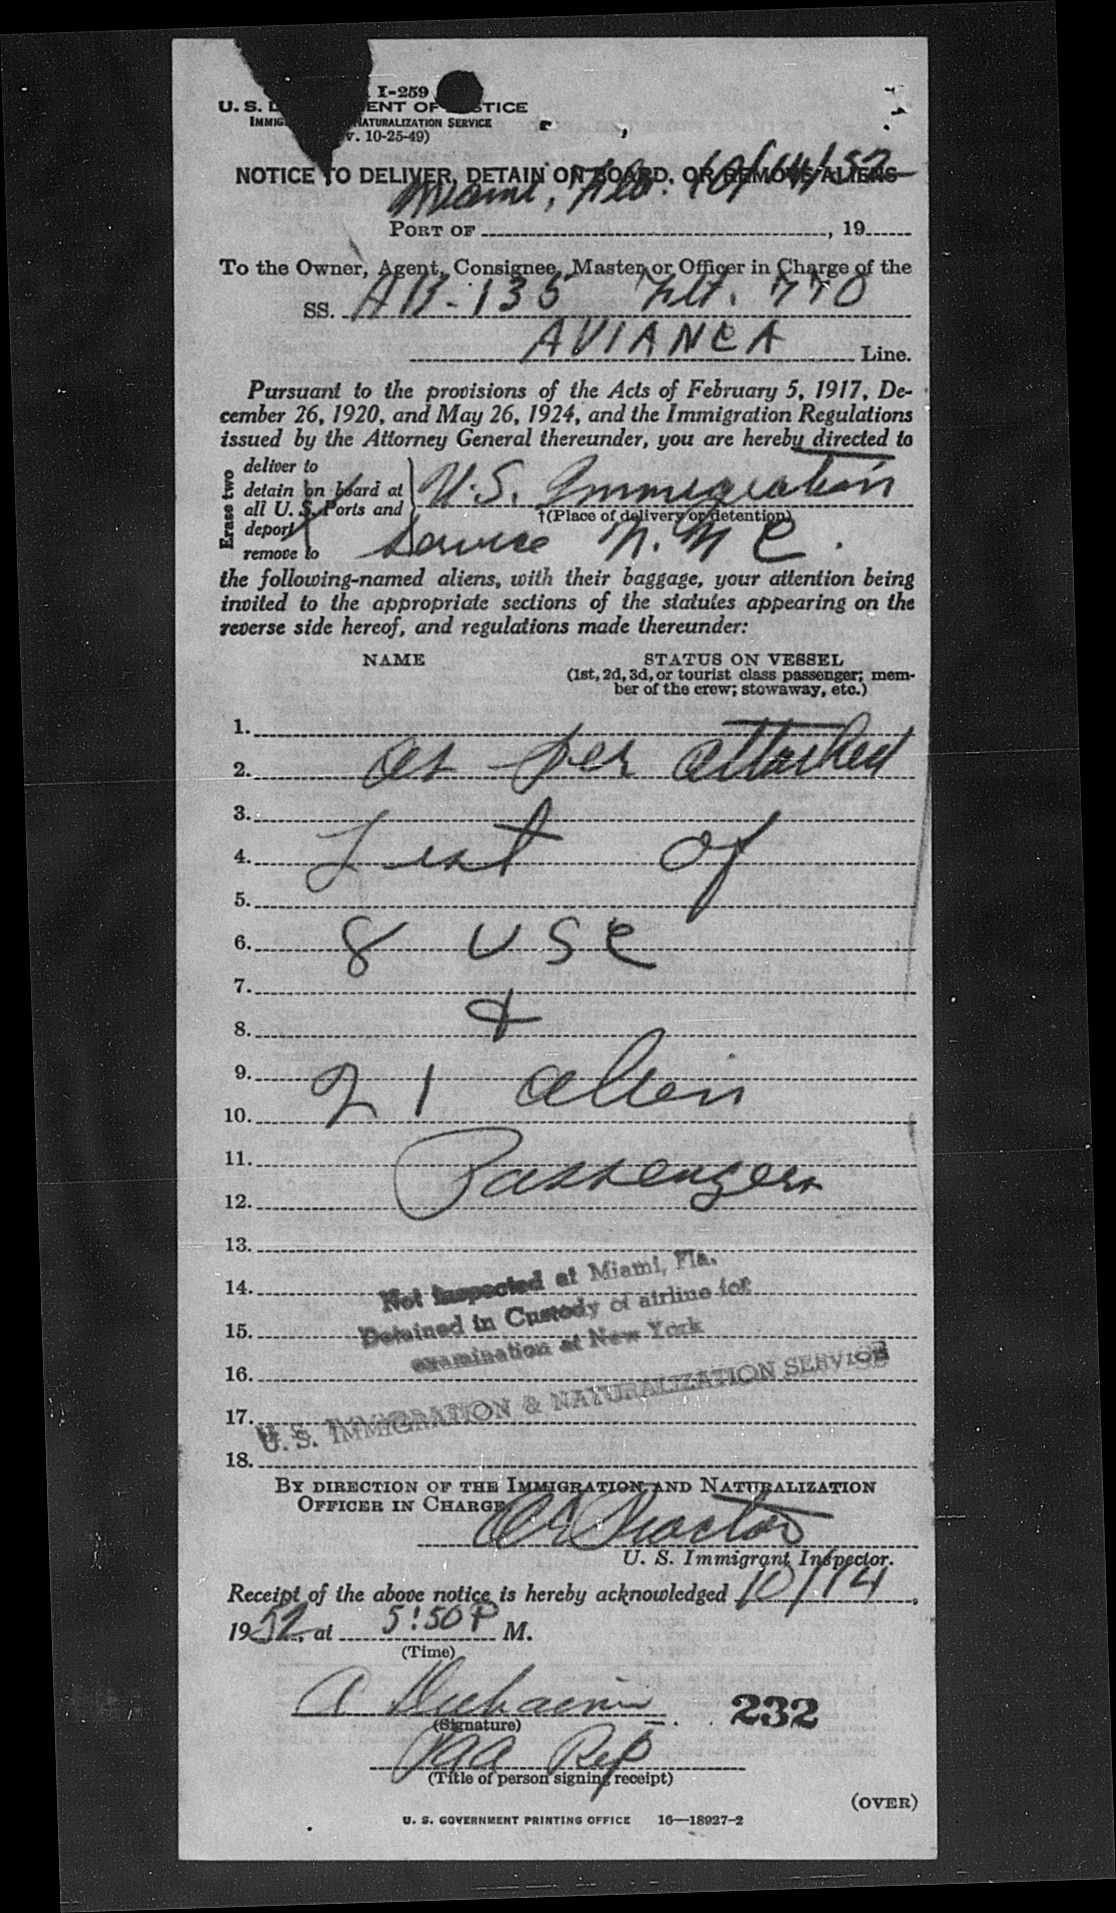 I-259
U. S. D ENT OF STICE
IMMIG NATURALIZATION SERVICE
v. 10-25-49)
NOTICE TO DELIVER, DETAIN ON BOARD, OR REMOVE ALIENS
Miami, Fla. 10/14/52
PORT OF , 19
To the Owner, Agent, Consignee, Master or Officer in Charge of the
SS. AB-135 Flt. 770
AVIANCA Line.
Pursuant to the provisions of the Acts of February 5, 1917, De-
cember 26, 1920, and May 26, 1924, and the Immigration Regulations
issued by the Attorney General thereunder, you are hereby directed to
Erase two
deliver to
detain on board at
all U. S. Ports and
deport
remove to
U.S. Immigration
†(Place of delivery or detention)
Service N.Y.C.
the following-named aliens, with their baggage, your attention being
invited to the appropriate sections of the statutes appearing on the
reverse side hereof, and regulations made thereunder:
NAME STATUS ON VESSEL
(1st, 2d, 3d, or tourist class passenger; mem-
ber of the crew; stowaway, etc.)
1.
2. as per attached
3.
4. List of
5.
6. 8 USC
7.
8. &
9. 21 alien
10.
11. Passengers
12.
13.
14. Not Inspected at Miami, Fla.
15. Detained in Custody of airline for
examination at New York
16.
17. U. S. IMMIGRATION & NATURALIZATION SERVICE
18.
BY DIRECTION OF THE IMMIGRATION AND NATURALIZATION
OFFICER IN CHARGE
Proctor
U. S. Immigrant Inspector.
Receipt of the above notice is hereby acknowledged 10/14,
1952, at 5:50 P M.
(Time)
A
(Signature)
232
PAA Rep
(Title of person signing receipt)
(OVER)
U. S. GOVERNMENT PRINTING OFFICE 16—18927-2